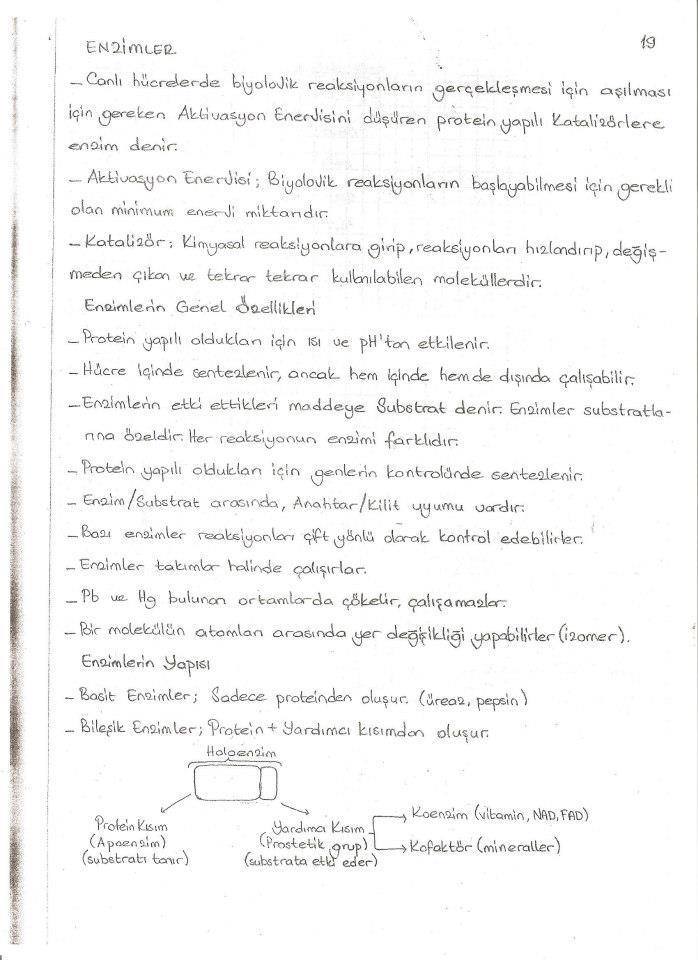 19
ENZİMLER
- Canlı hücrelerde biyolojik reaksiyonların gerçekleşmesi için aşılması
için gereken Aktivasyon Enerjisini düşüren protein yapılı Katalizörlere
enzim denir.
- Aktivasyon Enerjisi; Biyolojik reaksiyonların başlayabilmesi için gerekli
olan minimum enerji miktarıdır.
- Katalizör; Kimyasal reaksiyonlara girip, reaksiyonları hızlandırıp, değiş-
meden çıkan ve tekrar tekrar kullanılabilen moleküllerdir.
Enzimlerin Genel Özellikleri
- Protein yapılı oldukları için ısı ve pH'tan etkilenir.
- Hücre içinde sentezlenir, ancak hem içinde hemde dışında çalışabilir.
- Enzimlerin etki ettikleri maddeye Substrat denir. Enzimler substratla-
rına özeldir. Her reaksiyonun enzimi farklıdır.
- Protein yapılı oldukları için genlerin kontrolünde sentezlenir.
- Enzim/Substrat arasında, Anahtar/Kilit uyumu vardır.
- Bazı enzimler reaksiyonları çift yönlü olarak kontrol edebilirler.
- Enzimler takımlar halinde çalışırlar.
- Pb ve Hg bulunan ortamlarda çökelir, çalışamazlar.
- Bir molekülün atomları arasında yer değişikliği yapabilirler (izomer).
Enzimlerin Yapısı
- Basit Enzimler; Sadece proteinden oluşur. (üreaz, pepsin)
- Bileşik Enzimler; Protein + Yardımcı kısımdan oluşur.
Holoenzim
Protein Kısım
(Apoenzim)
(substratı tanır)
Yardımcı Kısım
(Prostetik grup)
(substrata etki eder)
Koenzim (vitamin, NAD, FAD)
Kofaktör (mineraller)